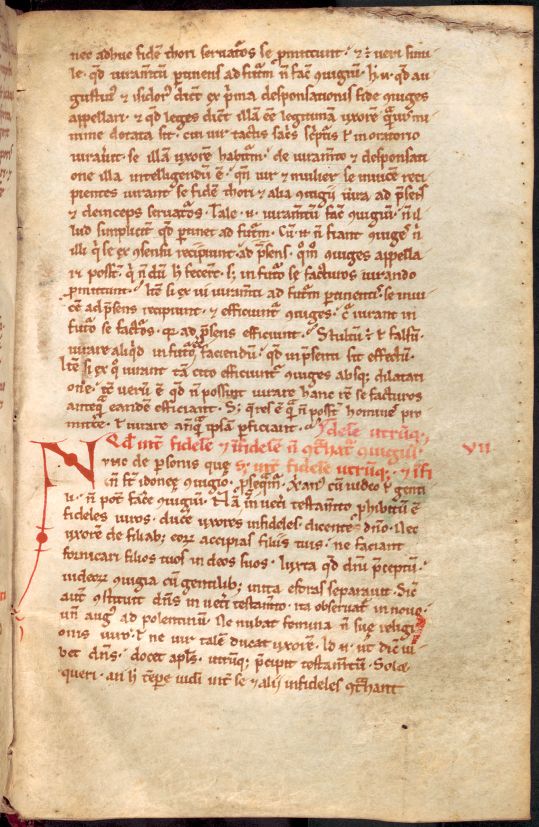 nec adhuc fidē thori servat̄os se ꝓmittunt · ⁊ ÷ veri simi
le · qd̄ iuram̄tū ꝑtinens ad futm̄ n̄ fac̄ ꝯiugiū · h̄ · qd̄ au
gustinꝰ ⁊ isidorꝰ dicūt ex p̄ma desponsationis fide ꝯiuges
appellari · ⁊ qd̄ leges dicūt illā ēē legitimā uxorē
mine dotata sit · cui uir tactis sac̄s sc̄pturis ł in oratorio
iurauit · se illā uxorē habitur̄ · de iuram̄to ⁊ desponsati
one illa intelligendū ē · qn̄ uir ⁊ mulier se inuicē reci
pientes iurant se fidē thori ⁊ alia ꝯiugii iura ad p̄sens
⁊ deinceps servat̄os · Tale · n̄ · iuram̄tū fac̄ ꝯiugiū · n̄ il
lud simplicit̄ qd̄ ꝑtinet ad futm̄ · Cū · n̄ · n̄ fiant ꝯiuges n̄
illi q̄ se ex ꝯsensu recipiunt ad p̄sens · qōm̄ ꝯiuges appella
ri post̄t · q̄ n̄ dū h̄ fecer̄t · s; in futo se facturos iurando
ꝓmittunt · Itē si ex ui iuram̄ti ad futm̄ ꝑtinentis se inui
cē ad p̄sens recipiunt · ⁊ efficiunt̄ ꝯiuges · c̄ iurant in
futo se factōs · ad p̄sens efficiunt · Stultū ÷ ł falsū ·
iurare aliqd̄ in futō faciendū · qd̄ in p̄senti sit effectū ·
Itē si ex quo iurant tā cito efficiunt̄ ꝯiuges absq; dilatati
one · tē verū ē qd̄ n̄ possunt iurare hanc rē se facturos
anteq̄ eandē efficiant · S; q̄ res ē q̄ n̄ post̄ homines ꝓ
mitt̄e · ł iurare anq̄ ip̄sā ꝑficiant ·
Qd̄ int̄ fidelē ⁊ īfidelē n̄ ꝯt̄hat̄ ꝯiugiū · fidele utrūq; VII
Nunc de ꝑsonis que s; int̄ fidele utrūq; · ⁊ ifi
n̄ st̄ idonee ꝯiugio · ꝓseq̄m̄ · xp̄ian cū iudeo ł genti
li · n̄ pōt fac̄e ꝯiugiū · Nā q̄ in vet̄i testam̄to ꝓhibitū ē
fideles uiros · duc̄e uxores infideles dicente dn̄o · Nec
uxorē de filiab; eorꝝ accipias filiis tuis · ne faciant
fornicari filios tuos in deos suos · Iuxta qd̄ dn̄i p̄ceptū ·
iudeorꝝ ꝯiugia cū gentilib; inita esdras separauit · Sic̄
aut̄ ꝯstituit dn̄s in vet̄i testam̄to · ita observat̄ in nouo ·
un̄ augꝰ ad polentinū · Ne nubat femina n̄ sue religi
onis uiro · ł ne uir talē ducat uxorē · Id · n̄ · ut dic̄ iu
bet dn̄s · docet apl̄s · utrūq; p̄cipit testam̄tū · Solet
queri · an h̄ tēpore iudei int̄ se ⁊ alij infideles ꝯt̄hant